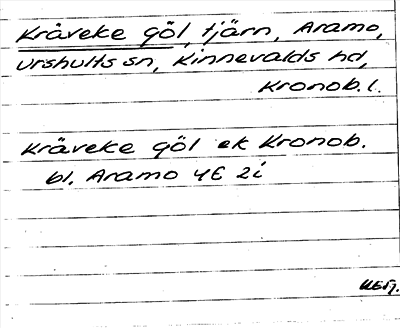 Kråveke göl, tjärn, Aramo,
Urshults sn, Kinnevalds hd,
Kronob. l.
Kräveke göl ek Kronob.
bl. Aramo 4E 2i